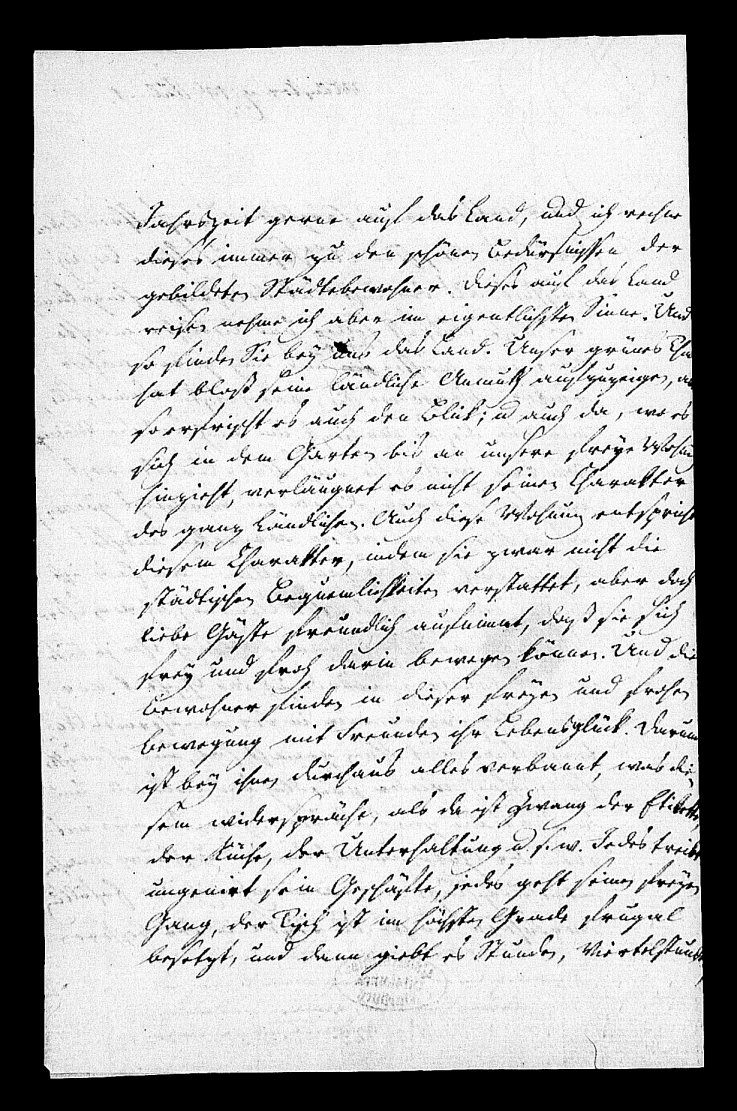 Jahrszeit gerne auf das Land, und ich rechne
dieses immer zu den schönen Bedürfnissen der
gebildeten Städtebewohner. Dieses auf das Land
reisen nehme ich aber im eigentlichsten Sinne. Und
so finden Sie bey uns das Land. Unser grünes Tha
hat bloß seine ländliche Anmuth aufzuzeigen, a
so erfrischt es auch den Blick; u auch da, wo es
sich in dem Garten bis an unsere freye Wohnu
hinzieht, verläugnet es nicht seinen Charakter
des ganz Ländlichen. Auch diese Wohnung entspricht
diesem Charakter, indem sie zwar nicht die
städtischen Bequemlichkeiten verstattet, aber doch
liebe Gäste freundlich aufnimmt, daß sie sich
frey und froh darin bewegen können. Und die
Bewohner finden in dieser freyen und frohen
Bewegung mit Freunden ihr Lebensglück. Darum
ist bey ihnen durchaus alles verbannt, was die-
sem widerspräche, als da ist Zwang der Etikette,
der Küche, der Unterhaltung u. s. w. Jedes treibt
ungenirt sein Geschäfte, jedes geht seinen freyen
Gang, der Tisch ist im höchsten Grade frugal
besetzt, und dann giebt es Stunden, Viertelstunden,